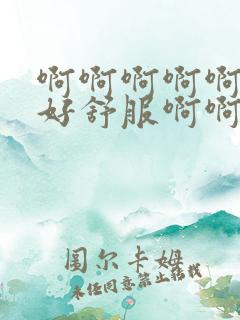 啊啊啊啊啊
好舒服啊啊
图尔卡姆
未经同意禁止转载